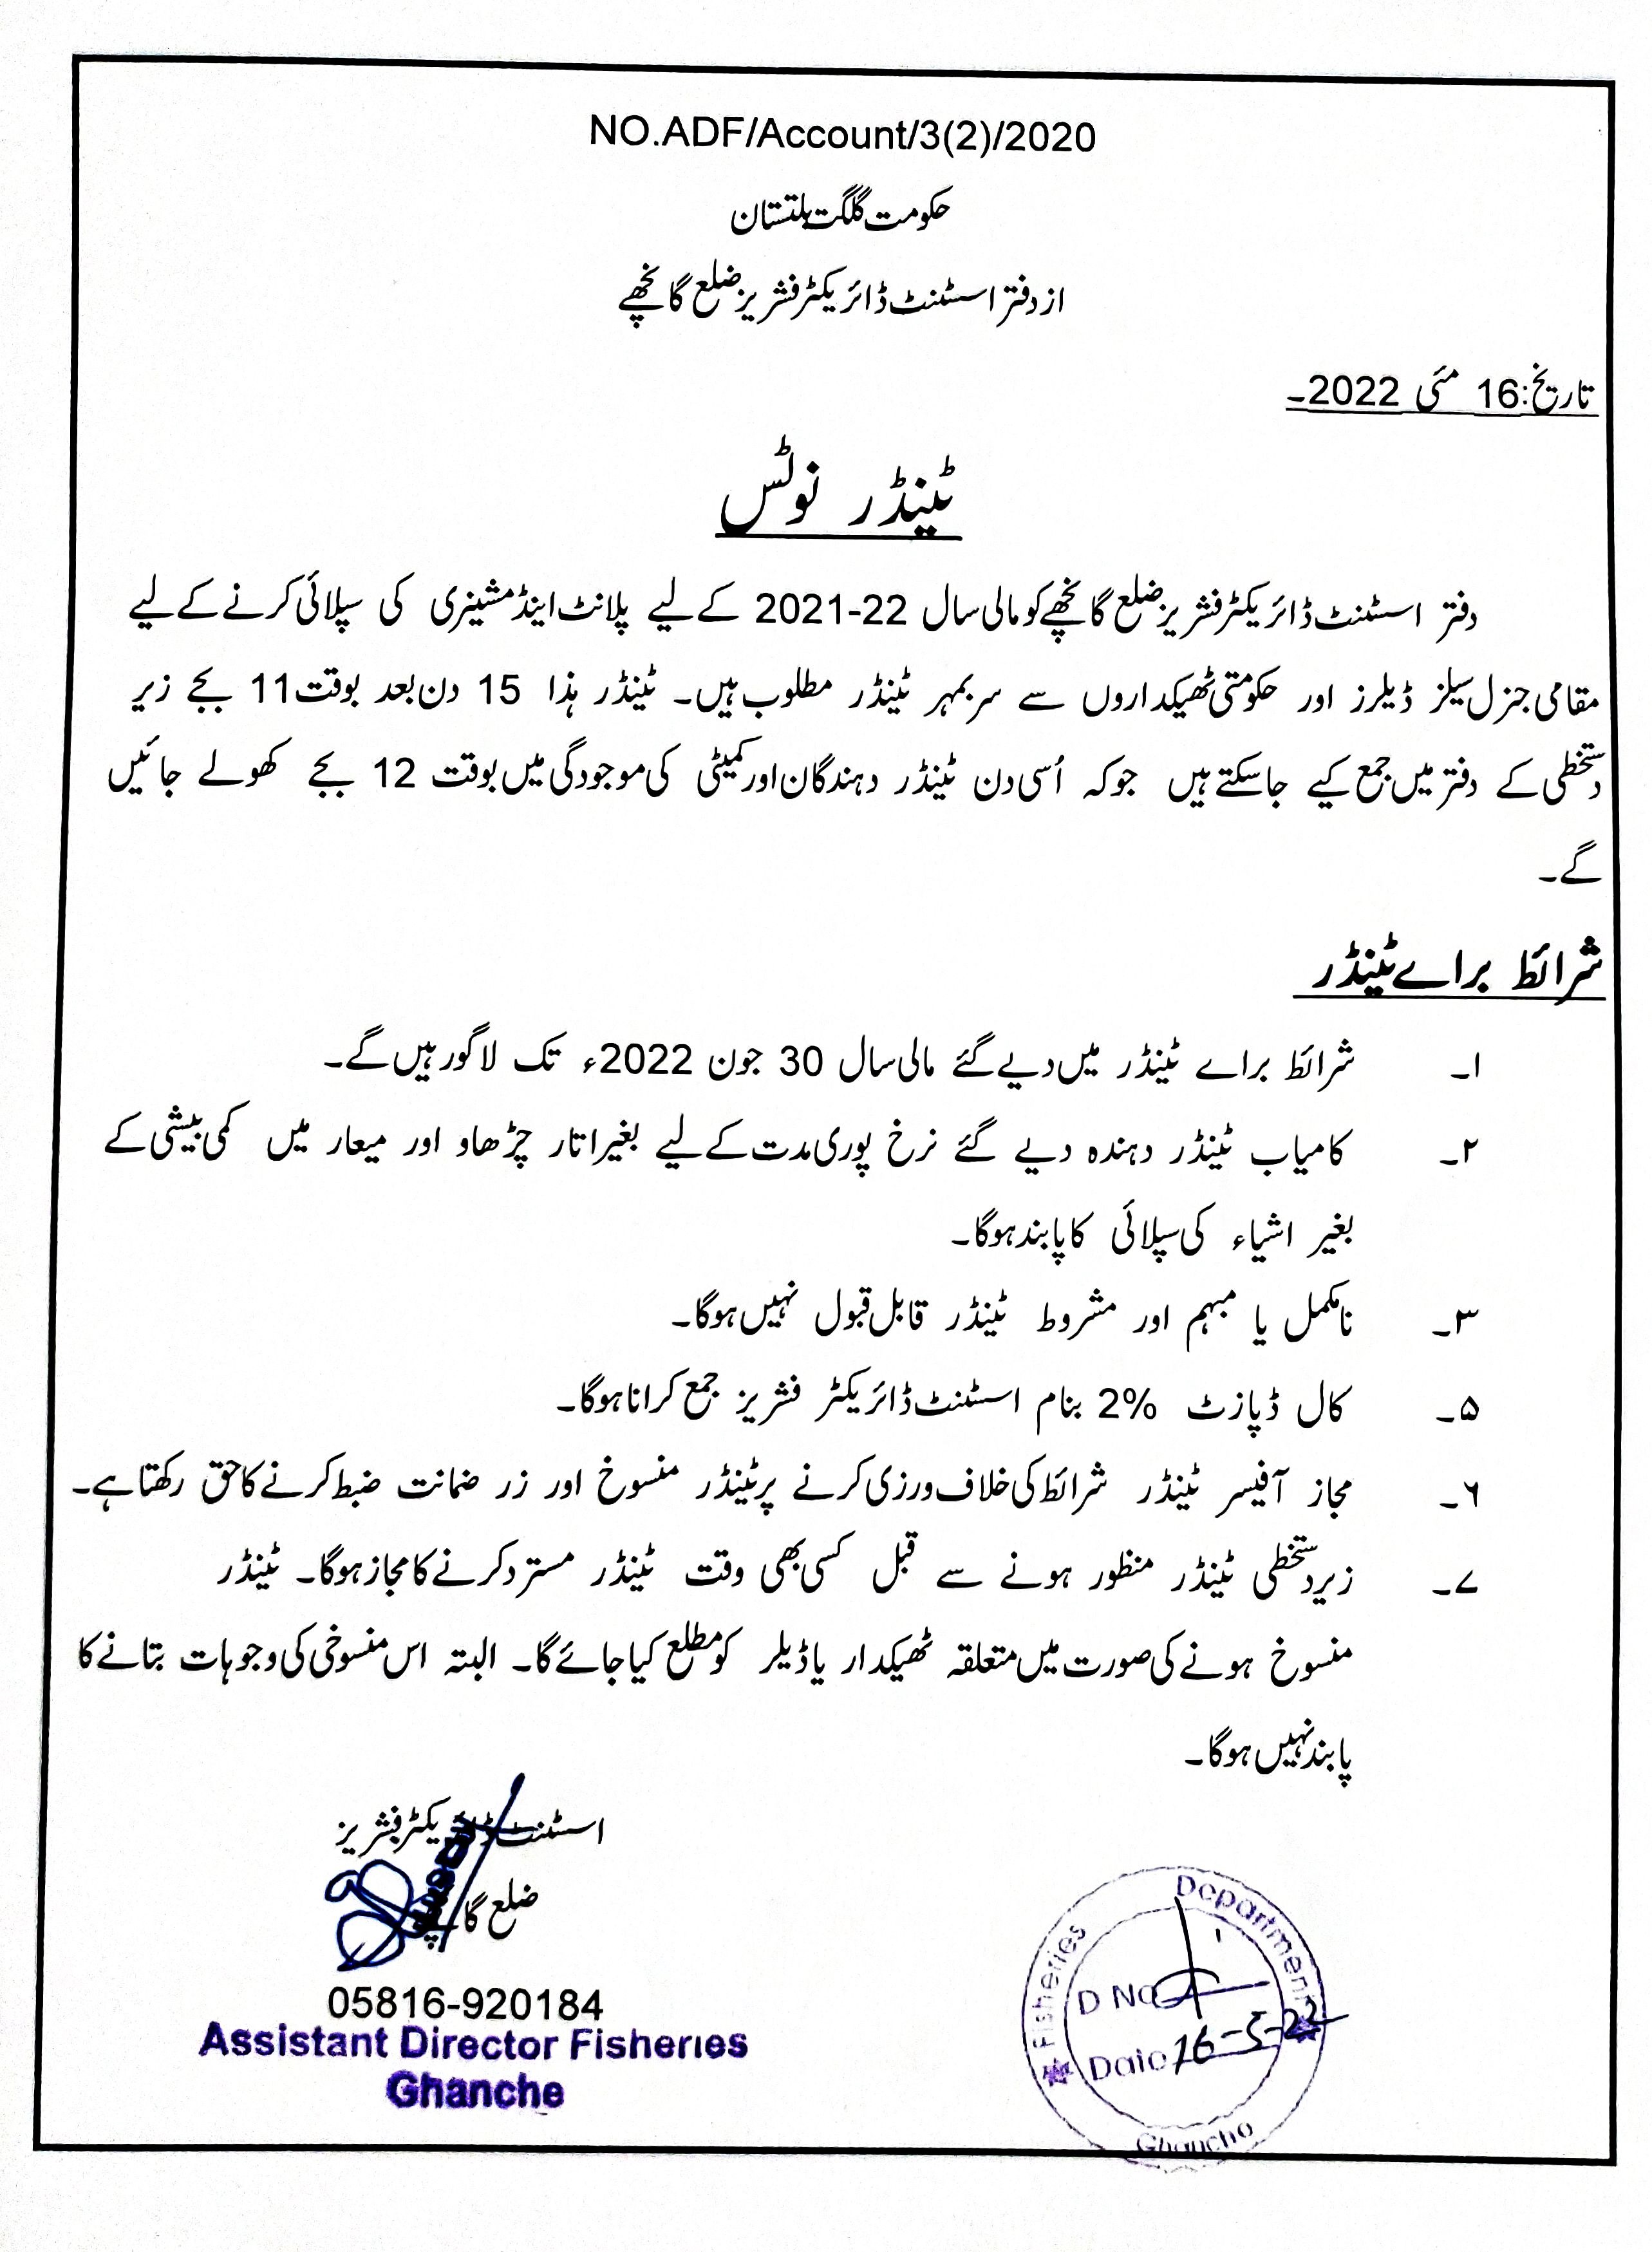 NO.ADF/Account/3(2)/2020
حکومت گلگت بلتستان
از دفتر اسسٹنٹ ڈائریکٹر فشریز ضلع گانچھے
تاریخ:16 مئی 2022۔
ٹینڈر نوٹس
دفتر اسسٹنٹ ڈائریکٹر فشریز ضلع گانچھے کو مالی سال 2021-22 کے لیے پلانٹ اینڈ مشینری کی سپلائی کرنے کے لیے
مقامی جنرل سیلز ڈیلرز اور حکومتی ٹھیکداروں سے سربمہر ٹینڈر مطلوب ہیں۔ ٹینڈر ہذا 15 دن بعد بوقت 11 بجے زیر
دستخطی کے دفتر میں جمع کیے جاسکتے ہیں جو کہ اُسی دن ٹینڈر دہندگان اور کمیٹی کی موجودگی میں بوقت 12 بجے کھولے جائیں
گے۔
شرائط براے ٹینڈر
۱۔ شرائط براے ٹینڈر میں دیے گئے مالی سال 30 جون 2022ء تک لاگو رہیں گے۔
۲۔ کامیاب ٹینڈر دہندہ دیے گئے نرخ پوری مدت کے لیے بغیر اتار چڑھاو اور میعار میں کمی بیشی کے
بغیر اشیاء کی سپلائی کا پابند ہوگا۔
۳۔ نامکمل یا مبہم اور مشروط ٹینڈر قابل قبول نہیں ہوگا۔
۵۔ کال ڈپازٹ 2% بنام اسسٹنٹ ڈائریکٹر فشریز جمع کرانا ہوگا۔
۶۔ مجاز آفیسر ٹینڈر شرائط کی خلاف ورزی کرنے پر ٹینڈر منسوخ اور زر ضمانت ضبط کرنے کا حق رکھتا ہے۔
۷۔ زیر دستخطی ٹینڈر منظور ہونے سے قبل کسی بھی وقت ٹینڈر مسترد کرنے کا مجاز ہوگا۔ ٹینڈر
منسوخ ہونے کی صورت میں متعلقہ ٹھیکدار یا ڈیلر کو مطلع کیا جائے گا۔ البتہ اس منسوخی کی وجوہات بتانے کا
پابند نہیں ہوگا۔
اسسٹنٹ ڈائریکٹر فشریز
ضلع گانچھے
05816-920184
Assistant Director Fisheries
Ghanche
Fisheries Department
D No
Date 16-5-22
Ghanche